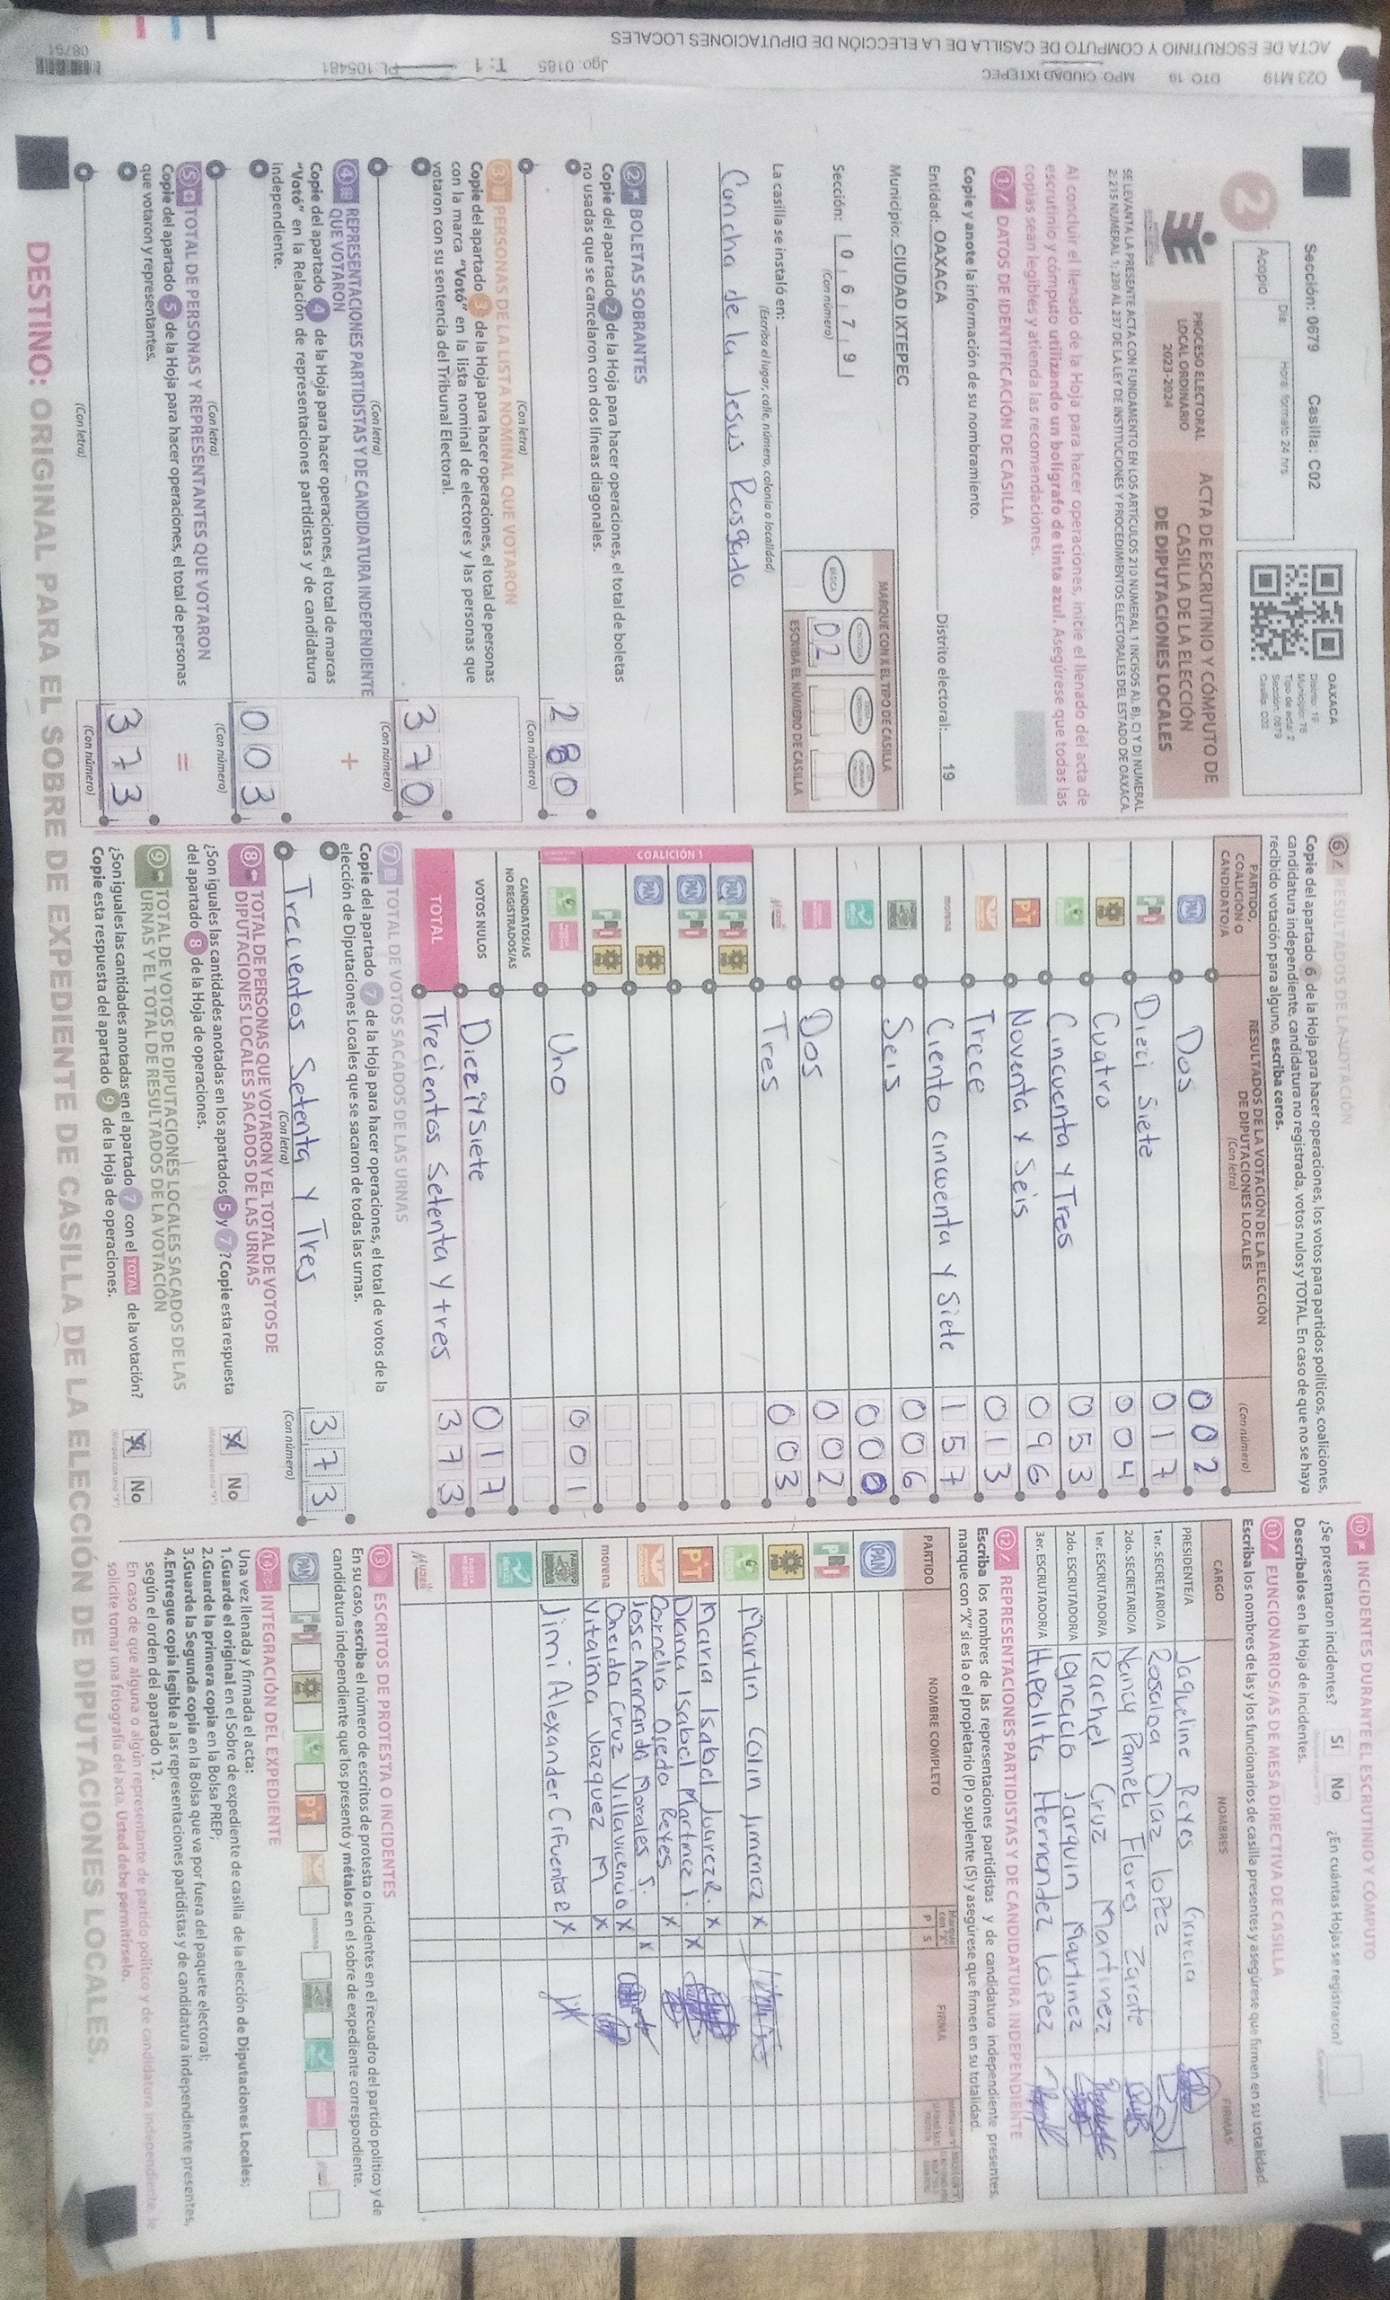 Sección: 0679 Casilla: C02
Día Hora formato 24 hrs
Acopio
2
OAXACA
Distrito: 19
Tipo de acta: 2
Sección: 0679
Casilla: C02
PROCESO ELECTORAL
LOCAL ORDINARIO
2023-2024
ACTA DE ESCRUTINIO Y CÓMPUTO DE
CASILLA DE LA ELECCIÓN
DE DIPUTACIONES LOCALES
SE LEVANTA LA PRESENTE ACTA CON FUNDAMENTO EN LOS ARTÍCULOS 210 NUMERAL 1 INCISOS A), B), C) Y D) NUMERAL
2; 215 NUMERAL 1; 230 AL 237 DE LA LEY DE INSTITUCIONES Y PROCEDIMIENTOS ELECTORALES DEL ESTADO DE OAXACA.
Al concluir el llenado de la Hoja para hacer operaciones, inicie el llenado del acta de
escrutinio y cómputo utilizando un bolígrafo de tinta azul. Asegúrese que todas las
copias sean legibles y atienda las recomendaciones.
1 DATOS DE IDENTIFICACIÓN DE CASILLA
Copie y anote la información de su nombramiento.
Entidad: OAXACA Distrito electoral: 19
Municipio: CIUDAD IXTEPEC
Sección: 0 6 7 9
(Con número)
MARQUE CON X EL TIPO DE CASILLA
BÁSICA
02
ESCRIBA EL NÚMERO DE CASILLA
La casilla se instaló en:
(Escriba el lugar, calle, número, colonia o localidad)
Concha de la Jesus Rasgado
2 BOLETAS SOBRANTES
Copie del apartado 2 de la Hoja para hacer operaciones, el total de boletas
no usadas que se cancelaron con dos líneas diagonales.
280
(Con letra) (Con número)
3 PERSONAS DE LA LISTA NOMINAL QUE VOTARON
Copie del apartado 3 de la Hoja para hacer operaciones, el total de personas
con la marca "Votó" en la lista nominal de electores y las personas que
votaron con su sentencia del Tribunal Electoral.
370
(Con letra) (Con número)
4 REPRESENTACIONES PARTIDISTAS Y DE CANDIDATURA INDEPENDIENTE
QUE VOTARON
+
Copie del apartado 4 de la Hoja para hacer operaciones, el total de marcas
"Votó" en la Relación de representaciones partidistas y de candidatura
independiente.
003
(Con letra) (Con número)
5 TOTAL DE PERSONAS Y REPRESENTANTES QUE VOTARON
=
Copie del apartado 5 de la Hoja para hacer operaciones, el total de personas
que votaron y representantes.
373
(Con letra) (Con número)
6 RESULTADOS DE LA VOTACIÓN
Copie del apartado 6 de la Hoja para hacer operaciones, los votos para partidos políticos, coaliciones,
candidatura independiente, candidatura no registrada, votos nulos y TOTAL. En caso de que no se haya
recibido votación para alguno, escriba ceros.
PARTIDO,
COALICIÓN O
CANDIDATO/A
RESULTADOS DE LA VOTACIÓN DE LA ELECCIÓN
DE DIPUTACIONES LOCALES
(Con letra) (Con número)
PAN Dos 002
PRI Dieci Siete 017
PRD Cuatro 004
Cincuenta Y Tres 053
PT Noventa Y Seis 096
Trece 013
morena Ciento cincuenta y Siete 157
Seis 006
000
Dos 002
Tres 003
COALICIÓN 1
PAN PRI PRD
PAN PRI
PAN PRD
PRI PRD
Uno 001
CANDIDATOS/AS
NO REGISTRADOS/AS
VOTOS NULOS Diez iy Siete 017
TOTAL Trecientos Setenta y tres 373
7 TOTAL DE VOTOS SACADOS DE LAS URNAS
Copie del apartado 7 de la Hoja para hacer operaciones, el total de votos de la
elección de Diputaciones Locales que se sacaron de todas las urnas.
Trecientos Setenta y Tres 373
(Con letra) (Con número)
8 TOTAL DE PERSONAS QUE VOTARON Y EL TOTAL DE VOTOS DE
DIPUTACIONES LOCALES SACADOS DE LAS URNAS
¿Son iguales las cantidades anotadas en los apartados 5 y 7? Copie esta respuesta
del apartado 8 de la Hoja de operaciones.
X No
9 TOTAL DE VOTOS DE DIPUTACIONES LOCALES SACADOS DE LAS
URNAS Y EL TOTAL DE RESULTADOS DE LA VOTACIÓN
¿Son iguales las cantidades anotadas en el apartado 7 con el TOTAL de la votación?
Copie esta respuesta del apartado 9 de la Hoja de operaciones.
X No
10 INCIDENTES DURANTE EL ESCRUTINIO Y CÓMPUTO
¿Se presentaron incidentes? Sí No ¿En cuántas Hojas se registraron?
Descríbalos en la Hoja de incidentes.
11 FUNCIONARIOS/AS DE MESA DIRECTIVA DE CASILLA
Escriba los nombres de las y los funcionarios de casilla presentes y asegúrese que firmen en su totalidad.
CARGO NOMBRES FIRMAS
PRESIDENTE/A Jaqueline Reyes Garcia
1er. SECRETARIO/A Rosalba Diaz lopez
2do. SECRETARIO/A Nancy Pamela Flores Zarate
1er. ESCRUTADOR/A Rachel Cruz Martinez
2do. ESCRUTADOR/A Ignacio Jarquin Martinez
3er. ESCRUTADOR/A Hipolita Hernandez Lopez
12 REPRESENTACIONES PARTIDISTAS Y DE CANDIDATURA INDEPENDIENTE
Escriba los nombres de las representaciones partidistas y de candidatura independiente presentes,
marque con "X" si es la o el propietario (P) o suplente (S) y asegúrese que firmen en su totalidad.
PARTIDO NOMBRE COMPLETO P S FIRMA
PAN
PRI
PRD
Martin Colin Jimenez X
Maria Isabel Juarez R. X
PT Diana Isabel Martinez J. X
Cornelio Ojedo Reyes X
Jose Armando Morales S. X
Cheida Cruz Villavicencio X
morena Vitalina Vazquez M X
Jimi Alexander Cifuentes E X
13 ESCRITOS DE PROTESTA O INCIDENTES
En su caso, escriba el número de escritos de protesta o incidentes en el recuadro del partido político y de
candidatura independiente que los presentó y métalos en el sobre de expediente correspondiente.
PAN PRI PRD PT morena
14 INTEGRACIÓN DEL EXPEDIENTE
Una vez llenada y firmada el acta:
1.Guarde el original en el Sobre de expediente de casilla de la elección de Diputaciones Locales;
2.Guarde la primera copia en la Bolsa PREP;
3.Guarde la Segunda copia en la Bolsa que va por fuera del paquete electoral;
4.Entregue copia legible a las representaciones partidistas y de candidatura independiente presentes,
según el orden del apartado 12.
En caso de que alguna o algún representante de partido político y de candidatura independiente le
solicite tomar una fotografía del acta. Usted debe permitírselo.
DESTINO: ORIGINAL PARA EL SOBRE DE EXPEDIENTE DE CASILLA DE LA ELECCIÓN DE DIPUTACIONES LOCALES.
O23 M19 DTO 19 MPO. CIUDAD IXTEPEC Jgo: 0185 T: 1 PL 105481 08/51
ACTA DE ESCRUTINIO Y COMPUTO DE CASILLA DE LA ELECCIÓN DE DIPUTACIONES LOCALES